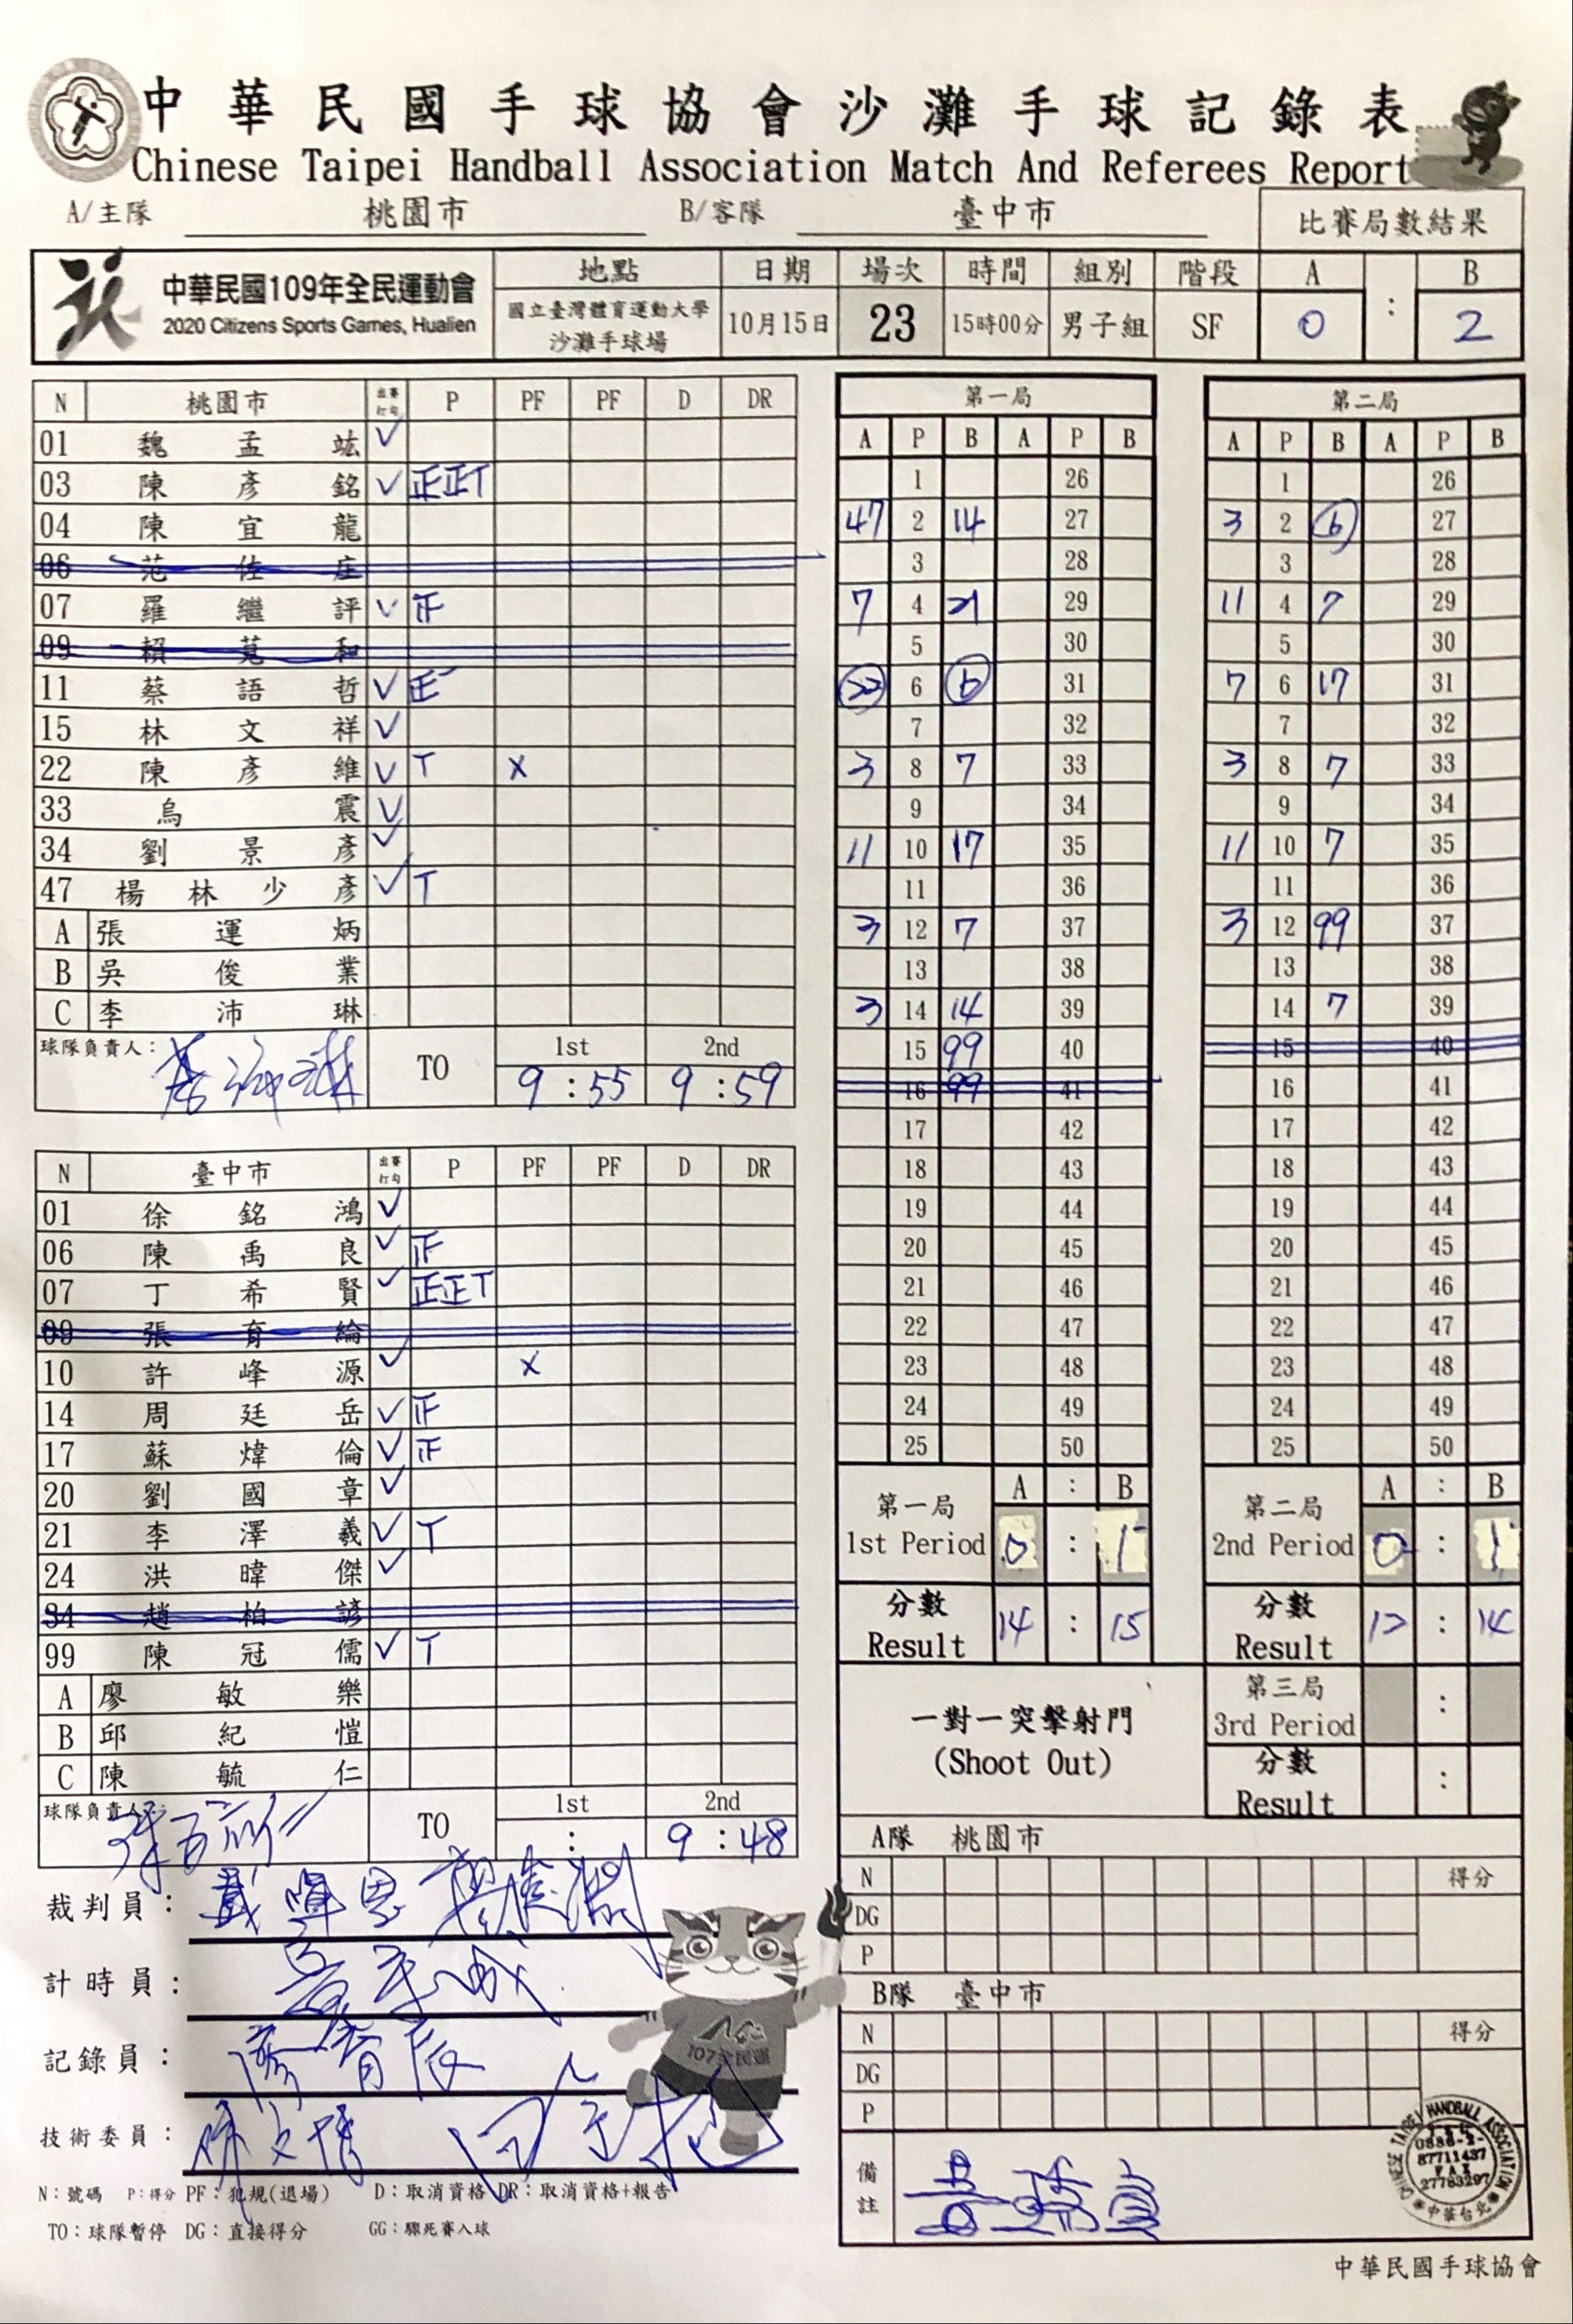 中華民國手球協會沙灘手球記錄表
Chinese Taipei Handball Association Match And Referees Report
A/主隊 桃園市 B/客隊 臺中市 比賽局數結果
中華民國109年全民運動會 地點 日期 場次 時間 組別 階段 A : B
2020 Citizens Sports Games, Hualien 國立臺灣體育運動大學 沙灘手球場 10月15日 23 15時00分 男子組 SF 0 2
N 桃園市 出賽打勾 P PF PF D DR
01 魏孟竑 ✓
03 陳彥銘 ✓ 正正T
04 陳宜龍
06 范佐庄
07 羅繼評 ✓ 正
09 賴莧和
11 蔡語哲 ✓
15 林文祥 ✓
22 陳彥維 ✓ T X
33 烏震 ✓
34 劉景彥 ✓
47 楊林少彥 ✓ T
A 張運炳
B 吳俊業
C 李沛琳
球隊負責人: TO 1st 2nd
9:55 9:59
N 臺中市 出賽打勾 P PF PF D DR
01 徐銘鴻 ✓
06 陳禹良 ✓ 正
07 丁希賢 ✓ 正正T
09 張育綸
10 許峰源 ✓ X
14 周廷岳 ✓ 正
17 蘇煒倫 ✓ 正
20 劉國章 ✓
21 李澤羲 ✓ T
24 洪暐傑 ✓
34 趙柏諺
99 陳冠儒 ✓ T
A 廖敏樂
B 邱紀愷
C 陳毓仁
球隊負責人: TO 1st 2nd
: 9:48
裁判員:
計時員:
記錄員:
技術委員:
107全民運
N:號碼 P:得分 PF:犯規(退場) D:取消資格 DR:取消資格+報告
TO:球隊暫停 DG:直接得分 GG:驟死賽入球
第一局
A P B A P B
1 26
47 2 14 27
3 28
7 4 21 29
5 30
22 6 6 31
7 32
3 8 7 33
9 34
11 10 17 35
11 36
3 12 7 37
13 38
3 14 14 39
15 99 40
16 99 41
17 42
18 43
19 44
20 45
21 46
22 47
23 48
24 49
25 50
第一局 A : B
1st Period 0 : 1
分數
Result 14 : 15
第二局
A P B A P B
1 26
3 2 6 27
3 28
11 4 7 29
5 30
7 6 17 31
7 32
3 8 7 33
9 34
11 10 7 35
11 36
3 12 99 37
13 38
14 7 39
15 40
16 41
17 42
18 43
19 44
20 45
21 46
22 47
23 48
24 49
25 50
第二局 A : B
2nd Period 0 : 1
分數
Result 12 : 14
第三局
3rd Period :
分數
Result :
一對一突擊射門
(Shoot Out)
A隊 桃園市
N 得分
DG
P
B隊 臺中市
N 得分
DG
P
備註
CHINESE TAIPEI HANDBALL ASSOCIATION
87711437
FAX
27783297
中華台北
中華民國手球協會